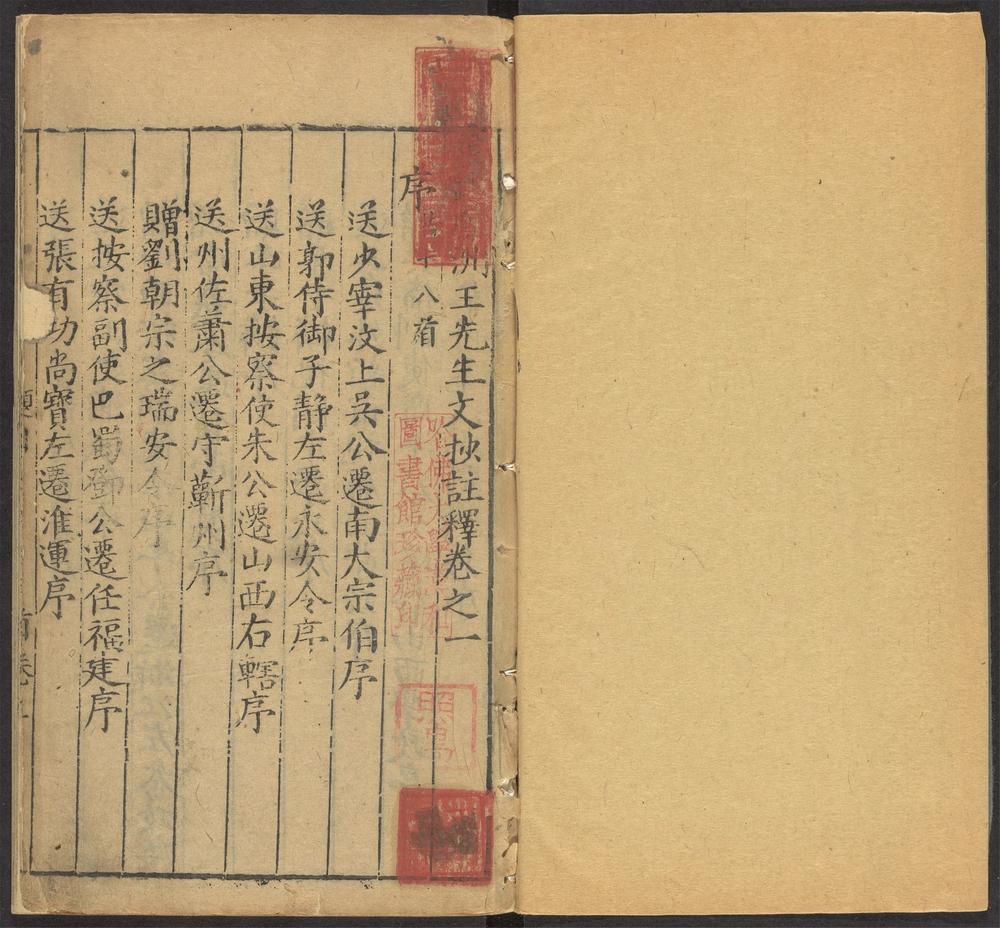 洲王先生文抄註釋卷之一
序 十八首
送少宰汶上吳公遷南大宗伯序
送郭侍御子靜左遷永安令序
送山東按察使朱公遷山西右轄序
送州佐蕭公遷守蘄州序
贈劉朝宗之瑞安令序
送按察副使巴蜀鄧公遷任福建序
送張有功尚寶左遷淮運序
哈佛大學
圖書館珍藏印